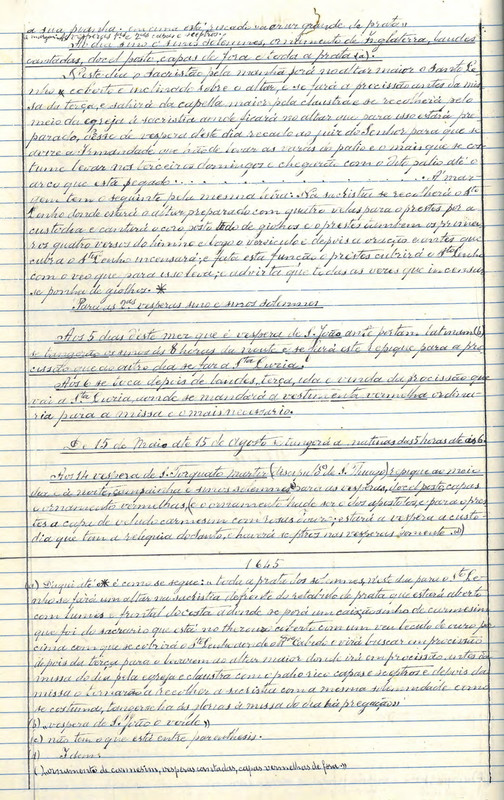 a sua peanha; em cima está
á margem
Ao dia sino e sinos solemnes, ornamento de Inglaterra, laudes
cantadas, docel posto, capas de fora e toda a prata (a).
Neste dia o sacristão pela manhã porá no altar maior o Santo Le-
nho * coberto e inclinado sobre o altar, e se fará a procissão antes da mis-
sa da terça, e sahirá da capella maior pela claustra e se recolherá pelo
meio da egreja á sacristia aonde ficará no altar que para isso estará pre-
parado, desse de vespera deste dia recado ao juiz do Senhor para que se
a Irmandade que hão de levar as varas do palio e o mais que se cos-
tuma levar nos terceiros domingos e chegarão com o dito palio até o
arco que está pegado . . . . . . . . . . . . . . . . . . . . Á mar-
gem tem o seguinte pela mesma letra: Na sacristia se recolherá o Sto
Lenho donde estará o altar preparado com quatro velas para o prestes pôr a
custodia e cantará o coro posto de giolhos e o prestes os primei-
ros quatro versos do himno e logo o versiculo e depois a oração e antes que
cubra o Sto Lenho incensará; e feita esta função o prestes cobrirá o Sto Lenho
com o veo que para isso leva; e advirta que todas as vezes que incensar
se ponha de giolhos. *
Para as 2as vesperas sino e sinos solemnes
Aos 5 dias deste mez que é vespera de S. João ante portam latinam (b)
ás 8 horas da noute e se fará este repique para a pro-
cissão que ao outro dia se faz a Sta Luzia.
Aos 6 se toca depois de laudes, terça, ida e vinda da procissão que
vai a Sta Luzia, aonde se mandará a vestimenta vermelha ordina-
ria para a missa e o mais necessario.
De 15 de Maio até 15 de Agosto e tangerá a matinas das 5 horas até ás 6.
Aos 14 vespera de S. Torquato martir se repique ao meio
dia e á noite e sinos solemnes para as vesperas, docel posto, capas
e ornamento vermelhas, (e o ornamento hade ser o dos apostolos, e para o pres-
tes a capa de veludo carmesim com rosas d'ouro; estará a vespera a custo-
dia que tem a reliquia do Santo, e haverá sceptros nas vesperas somente. d)
1645
(a) D'aqui até o * é como se segue: a toda a prata dos solemnes, neste dia para o Sto Le-
nho se fará um altar na sacristia defronte do retabulo de prata que estará aberto
com lumes e frontal de costa adonde se porá um caixãosinho de carmesim
que foi do sacrario que está no thesouro coberto com um veo tecido de ouro por
cima com que se cobrirá o Sto Lenho aonde o Rdo Cabido o virá buscar em procissão
depois da terça para o levarem ao altar maior donde irá em procissão antes da
missa do dia pela egreja e claustra com o palio rico capas e sceptros e depois da
missa o tornarão a recolher a sacristia com a mesma solemnidade como
se costuma, ás à missa do dia há pregação»
(b) «vespera de S. João o verde»
(c) não tem o que está entre parenthesis.
(d) Idem
(Lornamento de carmesim, vesperas cantadas, capas vermelhas de fora»